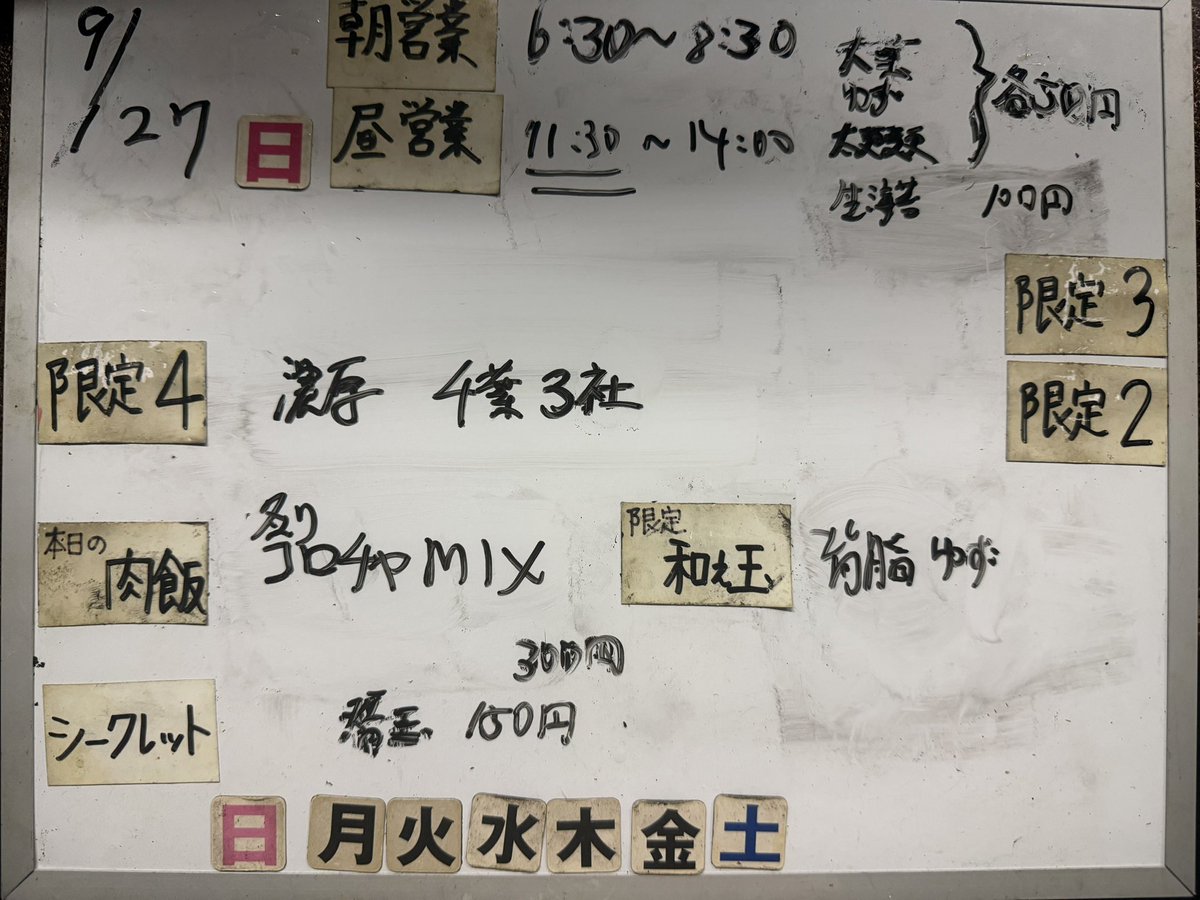 9/27 日
朝営業 6:30～8:30
昼営業 11:30～14:00
大葉
ゆず
太麺変更
各50円
生海苔 100円
限定3
限定4 濃厚 4葉3社
限定2
本日の肉飯 炙りコロチャMIX
限定和え玉 背脂 ゆず
300円
シークレット 150円
日 月 火 水 木 金 土